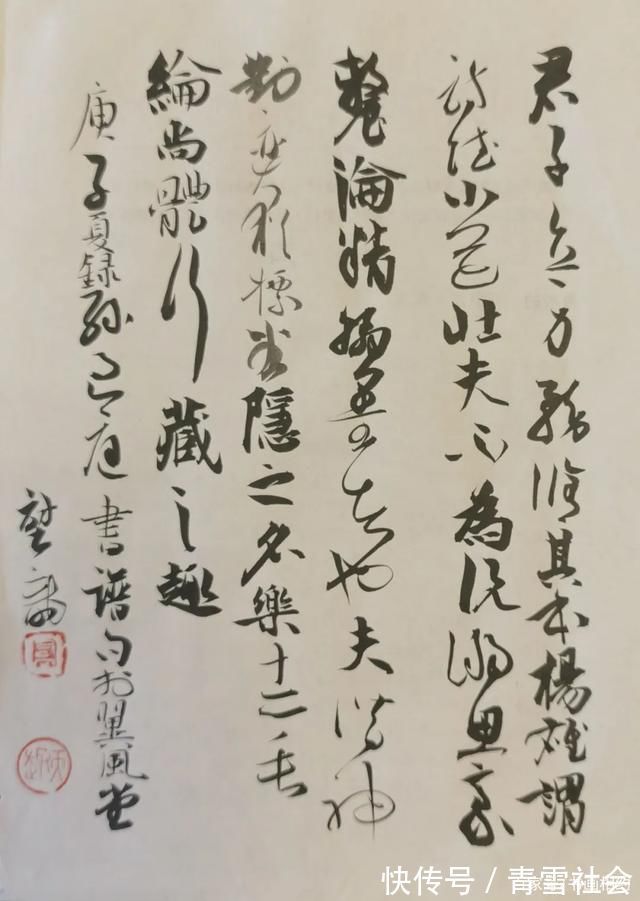 君子立身務脩其本楊雄謂
詩賦小道壯夫不為況溺思豪
氂淪精翰墨者也夫潛神
對奕猶標坐隱之名樂志垂
綸尚體行藏之趣
庚子夏録孫過庭書譜句於翼風堂
快传号／青雪社会